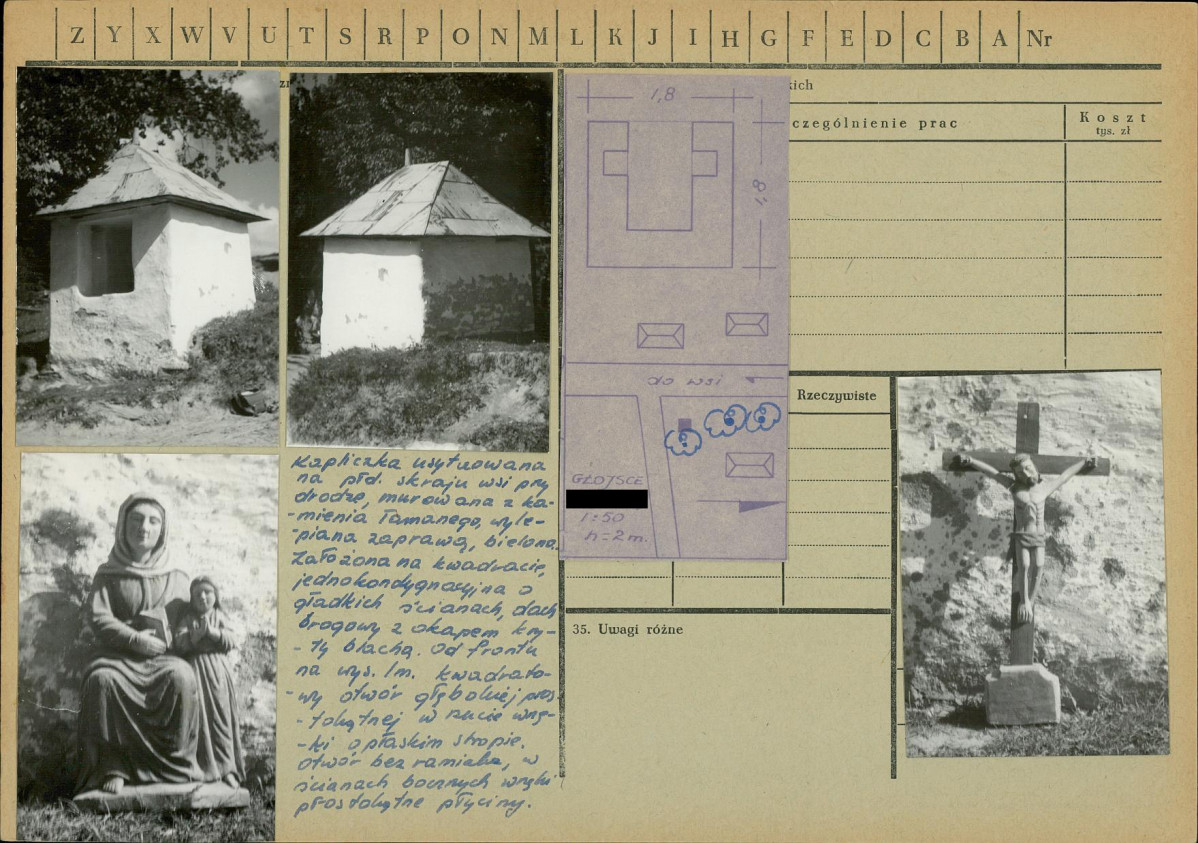 Z Y X W V U T S R P O N M L K J I H G F E D C B A Nr
kich
czególnienie prac
Koszt
tys. zł
1,8
1,8
do wsi
Rzeczywiste
GŁOJSCE
1=50
h=2m.
Kapliczka usytuowana
na płd. skraju wsi przy
drodze, murowana z ka-
-mienia łamanego, wyle-
-piana zaprawą, bielona.
Założona na kwadracie,
jednokondygnacyjna o
gładkich ścianach, dach
brogowy z okapem kry-
-ty blachą. Od frontu
na wys. 1m. kwadrato-
-wy otwór głębokiej pros-
-tokątnej w rzucie wnę-
-ki o płaskim stropie.
Otwór bez ramiaka, w
ścianach bocznych wnęki
prostokątne płyciny.
35. Uwagi różne